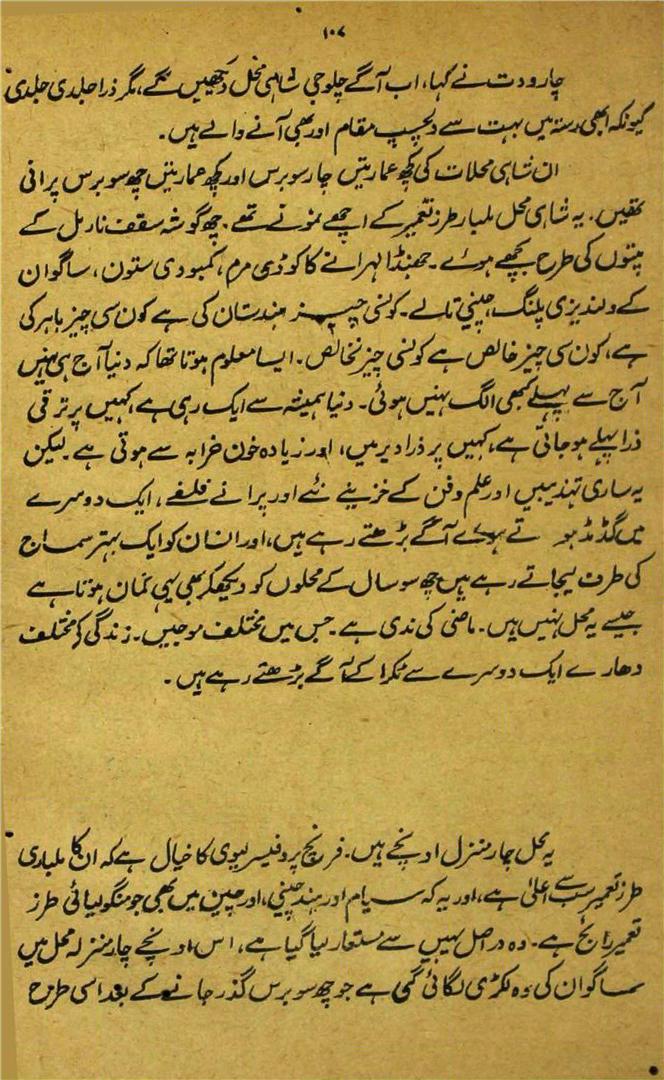 ۱۰۷
چارودت نے کہا، اب آگے چلو جی شاہی محل دیکھیں گے، مگر ذرا جلدی جلدی
کیونکہ ابھی رستہ میں بہت سے دلچسپ مقام اور بھی آنے والے ہیں۔
ان شاہی محلات کی کچھ عمارتیں چار سو برس اور کچھ عمارتیں چھ سو برس پرانی
تھیں۔ یہ شاہی محل ملبار طرز تعمیر کے اچھے نمونے تھے۔ چھ گوشہ سقف ناریل کے
پتوں کی طرح بچھے ہوئے۔ جھنڈا لہرانے کا کوڈی مرم، کمبودی ستون، ساگوان
کے ولندیزی پلنگ، چینی تالے۔ کونسی چیز ہندستان کی ہے کون سی چیز باہر کی
ہے، کون سی چیز خالص ہے کونسی چیز نخالص۔ ایسا معلوم ہوتا تھا کہ دنیا آج ہی نہیں
آج سے پہلے کبھی الگ نہیں ہوئی۔ دنیا ہمیشہ سے ایک رہی ہے، کہیں پر ترقی
ذرا پہلے ہو جاتی ہے، کہیں پر ذرا دیر میں، اور زیادہ خون خرابہ سے ہوتی ہے لیکن
یہ ساری تہذیبیں اور علم و فن کے خزینے نئے اور پرانے فلسفے، ایک دوسرے
میں گڈمڈ ہوتے ہوئے آگے بڑھتے رہے ہیں، اور انسان کو ایک بہتر سماج
کی طرف لیجاتے رہے ہیں چھ سو سال کے محلوں کو دیکھکر بھی یہی گمان ہوتا ہے
جیسے یہ محل نہیں ہیں۔ ماضی کی ندی ہے۔ جس میں مختلف موجیں۔ زندگی کے مختلف
دھارے ایک دوسرے سے ٹکرا کے آگے بڑھتے رہے ہیں۔
یہ محل چار منزل اونچے ہیں۔ فرنچ پروفیسر لیوی کا خیال ہے کہ ان کا ملباری
طرز تعمیر سب سے اعلیٰ ہے، اور یہ کہ سیام اور ہند چینی، اور چین میں بھی جو منگولیائی طرز
تعمیر رائج ہے۔ وہ دراصل یہیں سے مستعار لیا گیا ہے، اس اونچے چار منزلہ محل میں
ساگوان کی وہ لکڑی لگائی گئی ہے جو چھ سو برس گذر جانے کے بعد اسی طرح